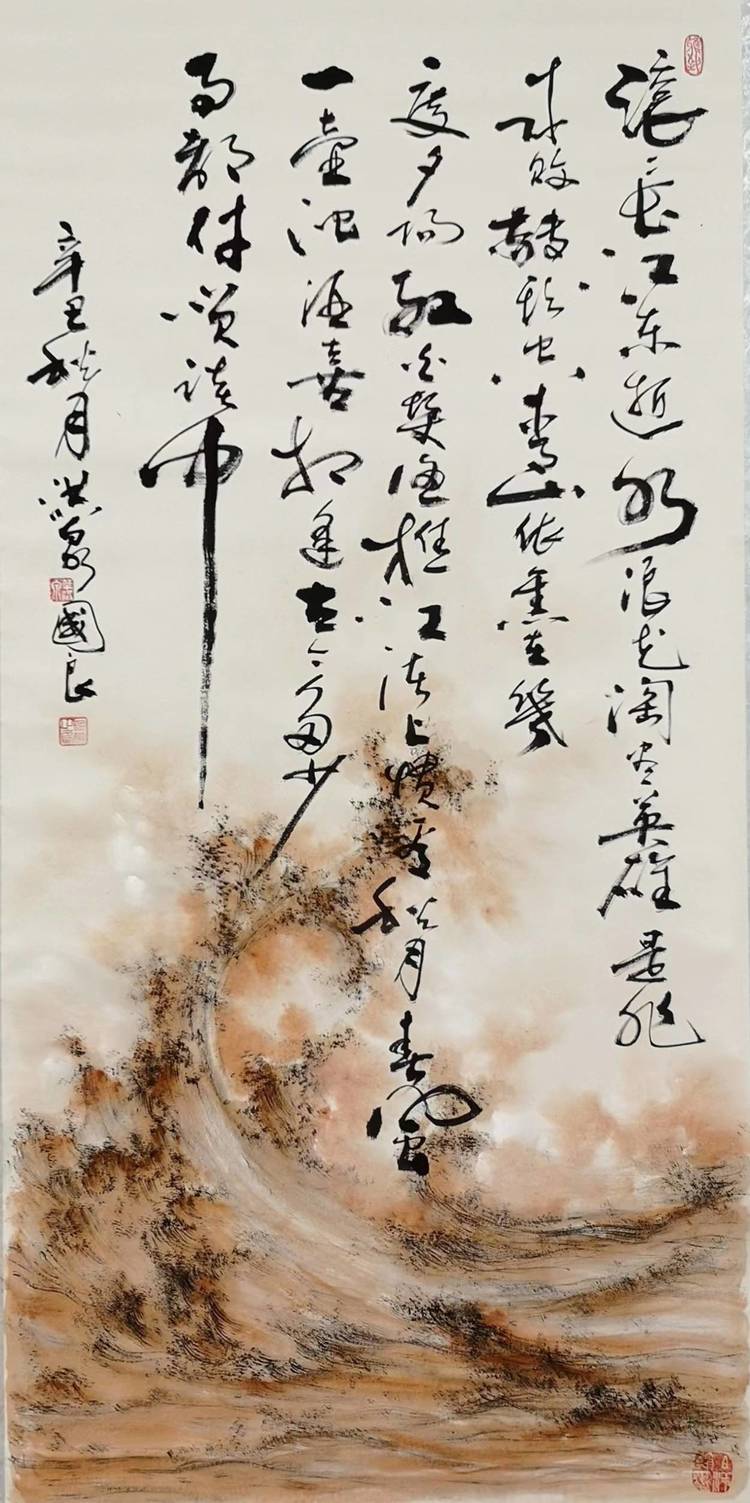 滚滚長江东逝水浪花淘尽英雄是非
成敗轉頭空青山依舊在幾
度夕陽红白髮漁樵江渚上惯看秋月春風
一壶濁酒喜相逢古今多少
事都付笑談中
辛丑秋月洪泉國良